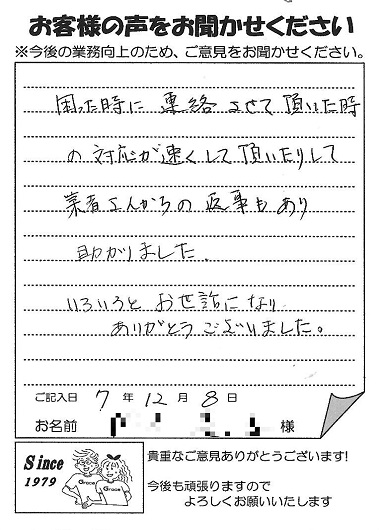 お客様の声をお聞かせください
※今後の業務向上のため、ご意見をお聞かせください。
困った時に連絡させて頂いた時
の対応が速くして頂いたりして
業者さんからの返事もあり
助かりました。
いろいろとお世話になり
ありがとうございました。
ご記入日 7 年 12 月 8 日
お名前 様
Since
1979
Grace
Grace
貴重なご意見ありがとうございます!
今後も頑張りますので
よろしくお願いいたします